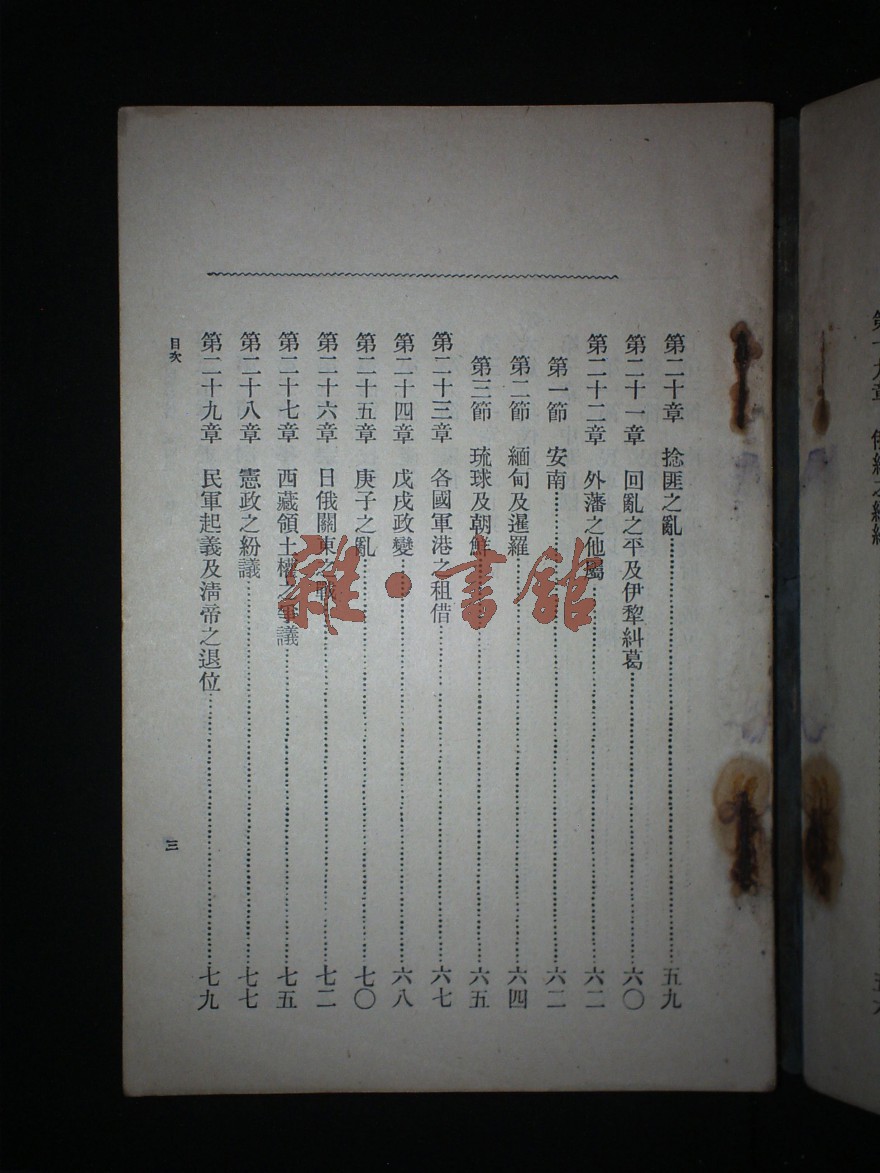 第二十章　捻匪之亂……五九
第二十一章　回亂之平及伊犂糾葛……六〇
第二十二章　外藩之他屬……六二
第一節　安南……六二
第二節　緬甸及暹羅……六四
第三節　琉球及朝鮮……六五
第二十三章　各國軍港之租借……六七
第二十四章　戊戌政變……六八
第二十五章　庚子之亂……七〇
第二十六章　日俄關東之戰……七二
第二十七章　西藏領土權之爭議……七五
第二十八章　憲政之紛議……七七
第二十九章　民軍起義及清帝之退位……七九
目次
三
雜·書館